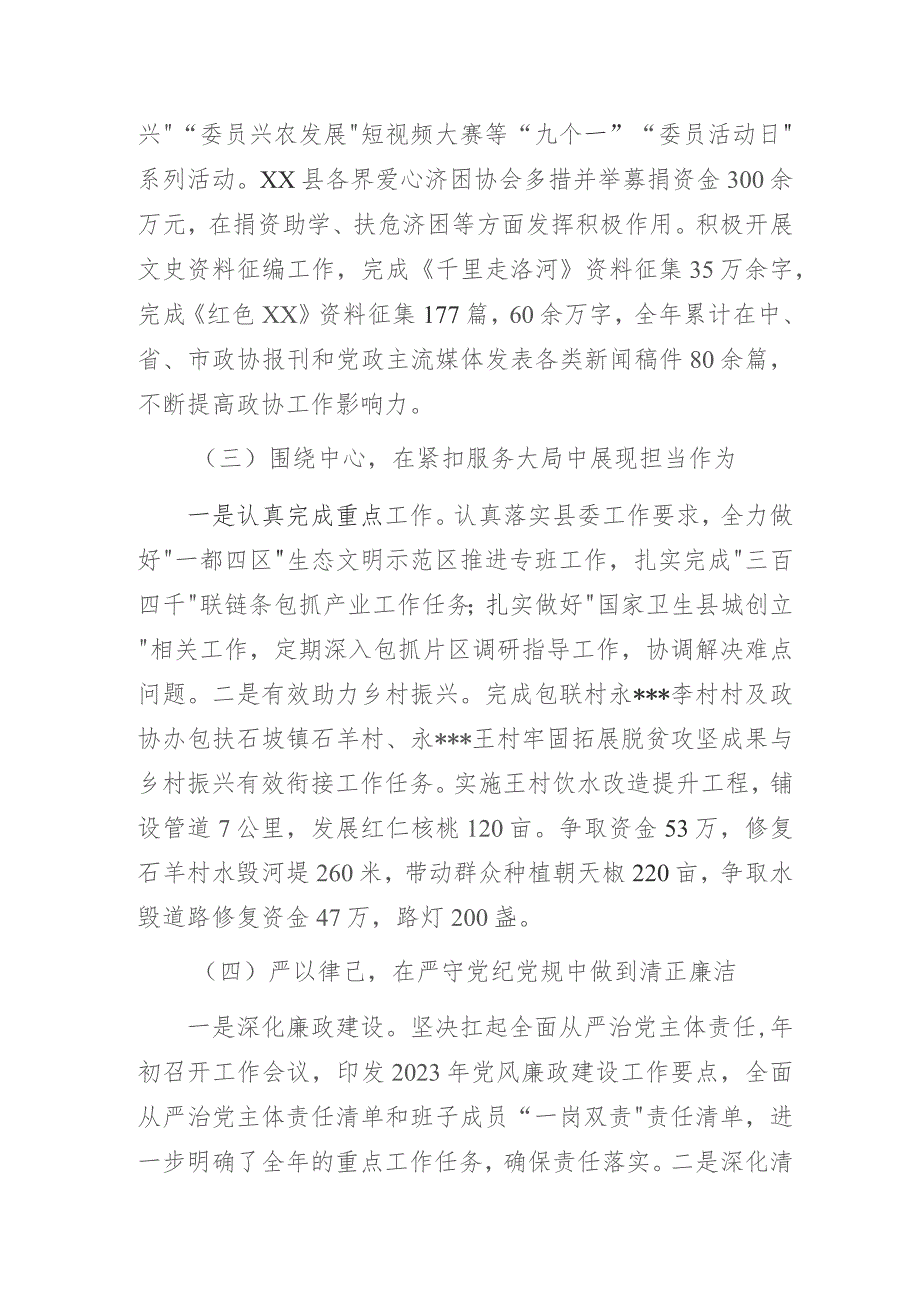 兴"“委员兴农发展"短视频大赛等“九个一”“委员活动日"
系列活动。XX 县各界爱心济困协会多措并举募捐资金 300 余
万元，在捐资助学、扶危济困等方面发挥积极作用。积极开展
文史资料征编工作，完成《千里走洛河》资料征集 35 万余字，
完成《红色 XX》资料征集 177 篇，60 余万字，全年累计在中、
省、市政协报刊和党政主流媒体发表各类新闻稿件 80 余篇，
不断提高政协工作影响力。
（三）围绕中心，在紧扣服务大局中展现担当作为
一是认真完成重点工作。认真落实县委工作要求，全力做
好"一都四区"生态文明示范区推进专班工作，扎实完成"三百
四千"联链条包抓产业工作任务；扎实做好"国家卫生县城创立
"相关工作，定期深入包抓片区调研指导工作，协调解决难点
问题。二是有效助力乡村振兴。完成包联村永***李村村及政
协办包扶石坡镇石羊村、永***王村牢固拓展脱贫攻坚成果与
乡村振兴有效衔接工作任务。实施王村饮水改造提升工程，铺
设管道 7 公里，发展红仁核桃 120 亩。争取资金 53 万，修复
石羊村水毁河堤 260 米，带动群众种植朝天椒 220 亩，争取水
毁道路修复资金 47 万，路灯 200 盏。
（四）严以律己，在严守党纪党规中做到清正廉洁
一是深化廉政建设。坚决扛起全面从严治党主体责任,年
初召开工作会议，印发 2023 年党风廉政建设工作要点，全面
从严治党主体责任清单和班子成员“一岗双责"责任清单，进
一步明确了全年的重点工作任务，确保责任落实。二是深化清